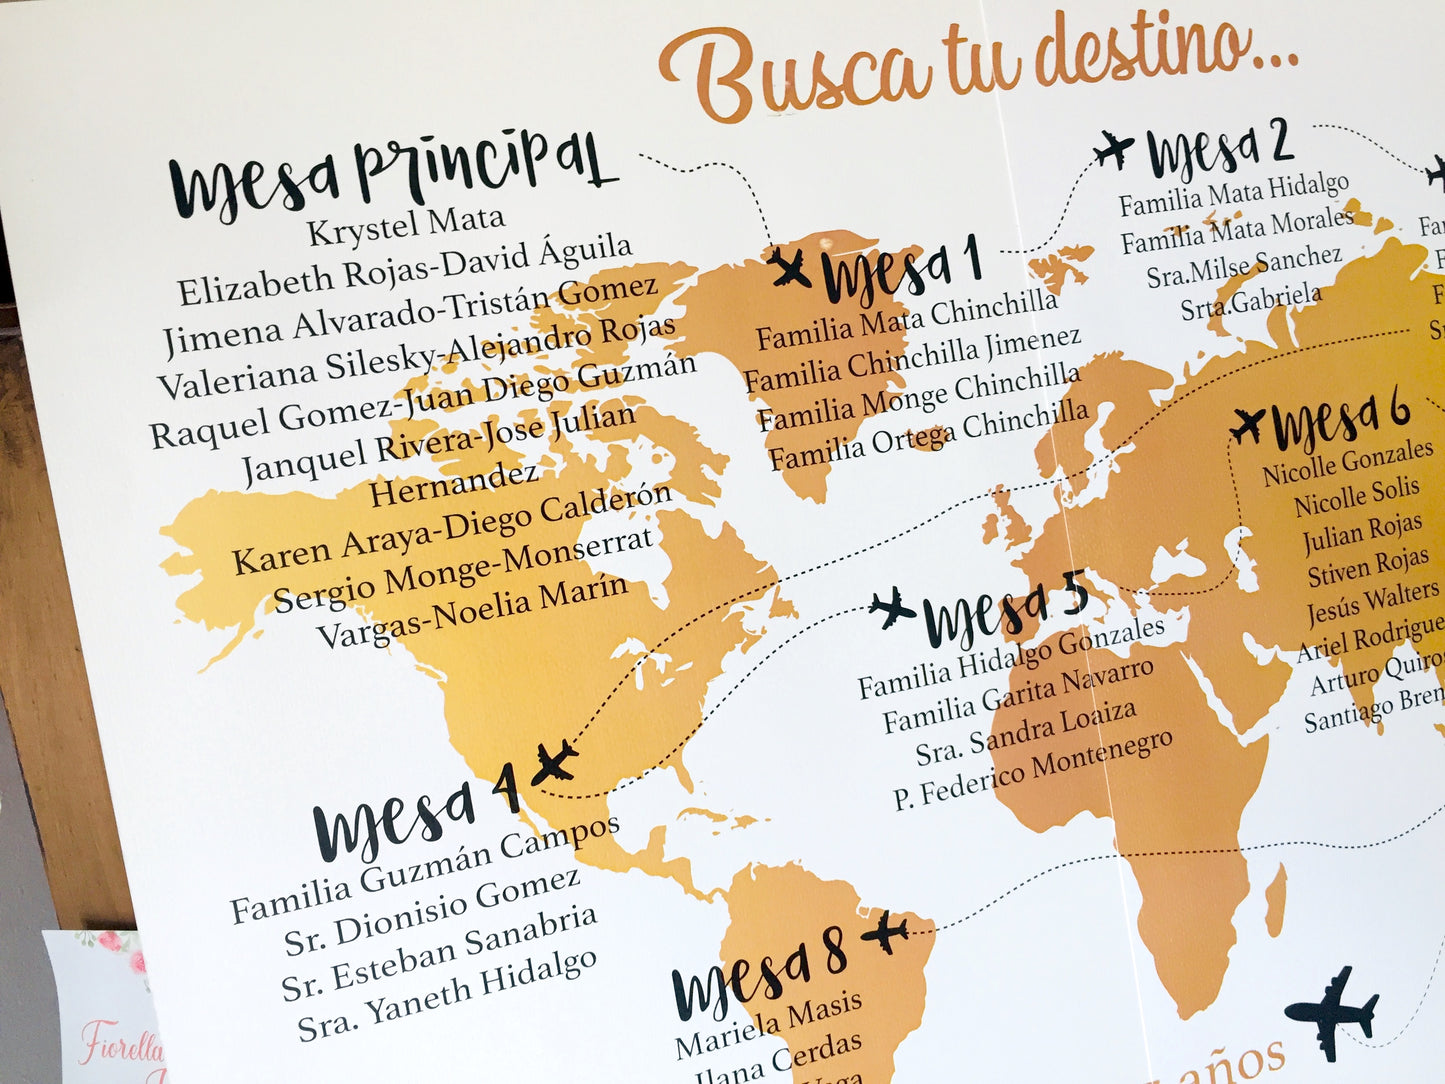 Busca tu destino...
mesa principal
Krystel Mata
Elizabeth Rojas-David Águila
Jimena Alvarado-Tristán Gomez
Valeriana Silesky-Alejandro Rojas
Raquel Gomez-Juan Diego Guzmán
Janquel Rivera-Jose Julian
Hernandez
Karen Araya-Diego Calderón
Sergio Monge-Monserrat
Vargas-Noelia Marín
mesa 1
Familia Mata Chinchilla
Familia Chinchilla Jimenez
Familia Monge Chinchilla
Familia Ortega Chinchilla
mesa 2
Familia Mata Hidalgo
Familia Mata Morales
Sra.Milse Sanchez
Srta.Gabriela
mesa 4
Familia Guzmán Campos
Sr. Dionisio Gomez
Sr. Esteban Sanabria
Sra. Yaneth Hidalgo
mesa 5
Familia Hidalgo Gonzales
Familia Garita Navarro
Sra. Sandra Loaiza
P. Federico Montenegro
mesa 6
Nicolle Gonzales
Nicolle Solis
Julian Rojas
Stiven Rojas
Jesús Walters
Ariel Rodrigue
Arturo Quiros
Santiago Bren
mesa 8
Mariela Masis
Ilana Cerdas
Vega
años
Fiorella